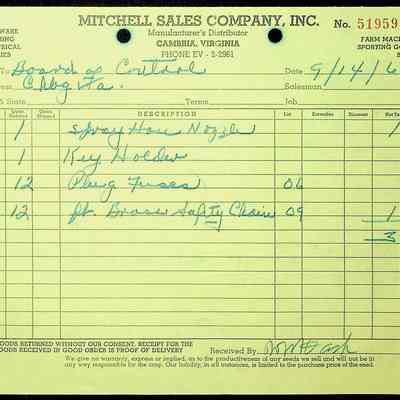 WARE MITCHELL SALES COMPANY, INC. No. 51959
Manufacturer's Distributor
CAMBRIA, VIRGINIA FARM MAC
SPORTING GO
PHONE EV - 2-2961
To Board of Control Date 9/14/6
Salesman
State Terms Job
DESCRIPTION List Extension Discount Net
1 Spray Hose Nozzle 1
1 Key Holder
12 Plug Fuses 06
12 ft. Brass Safety Chain 09 1
3
OODS RETURNED WITHOUT OUR CONSENT. RECEIPT FOR THE
OODS RECEIVED IN GOOD ORDER IS PROOF OF DELIVERY Received By
We give no warranty, express or implied, as to the productiveness of any seeds we sell and will not be in
any way responsible for the crop. Our liability, in all instances, is limited to the purchase price of the seed.